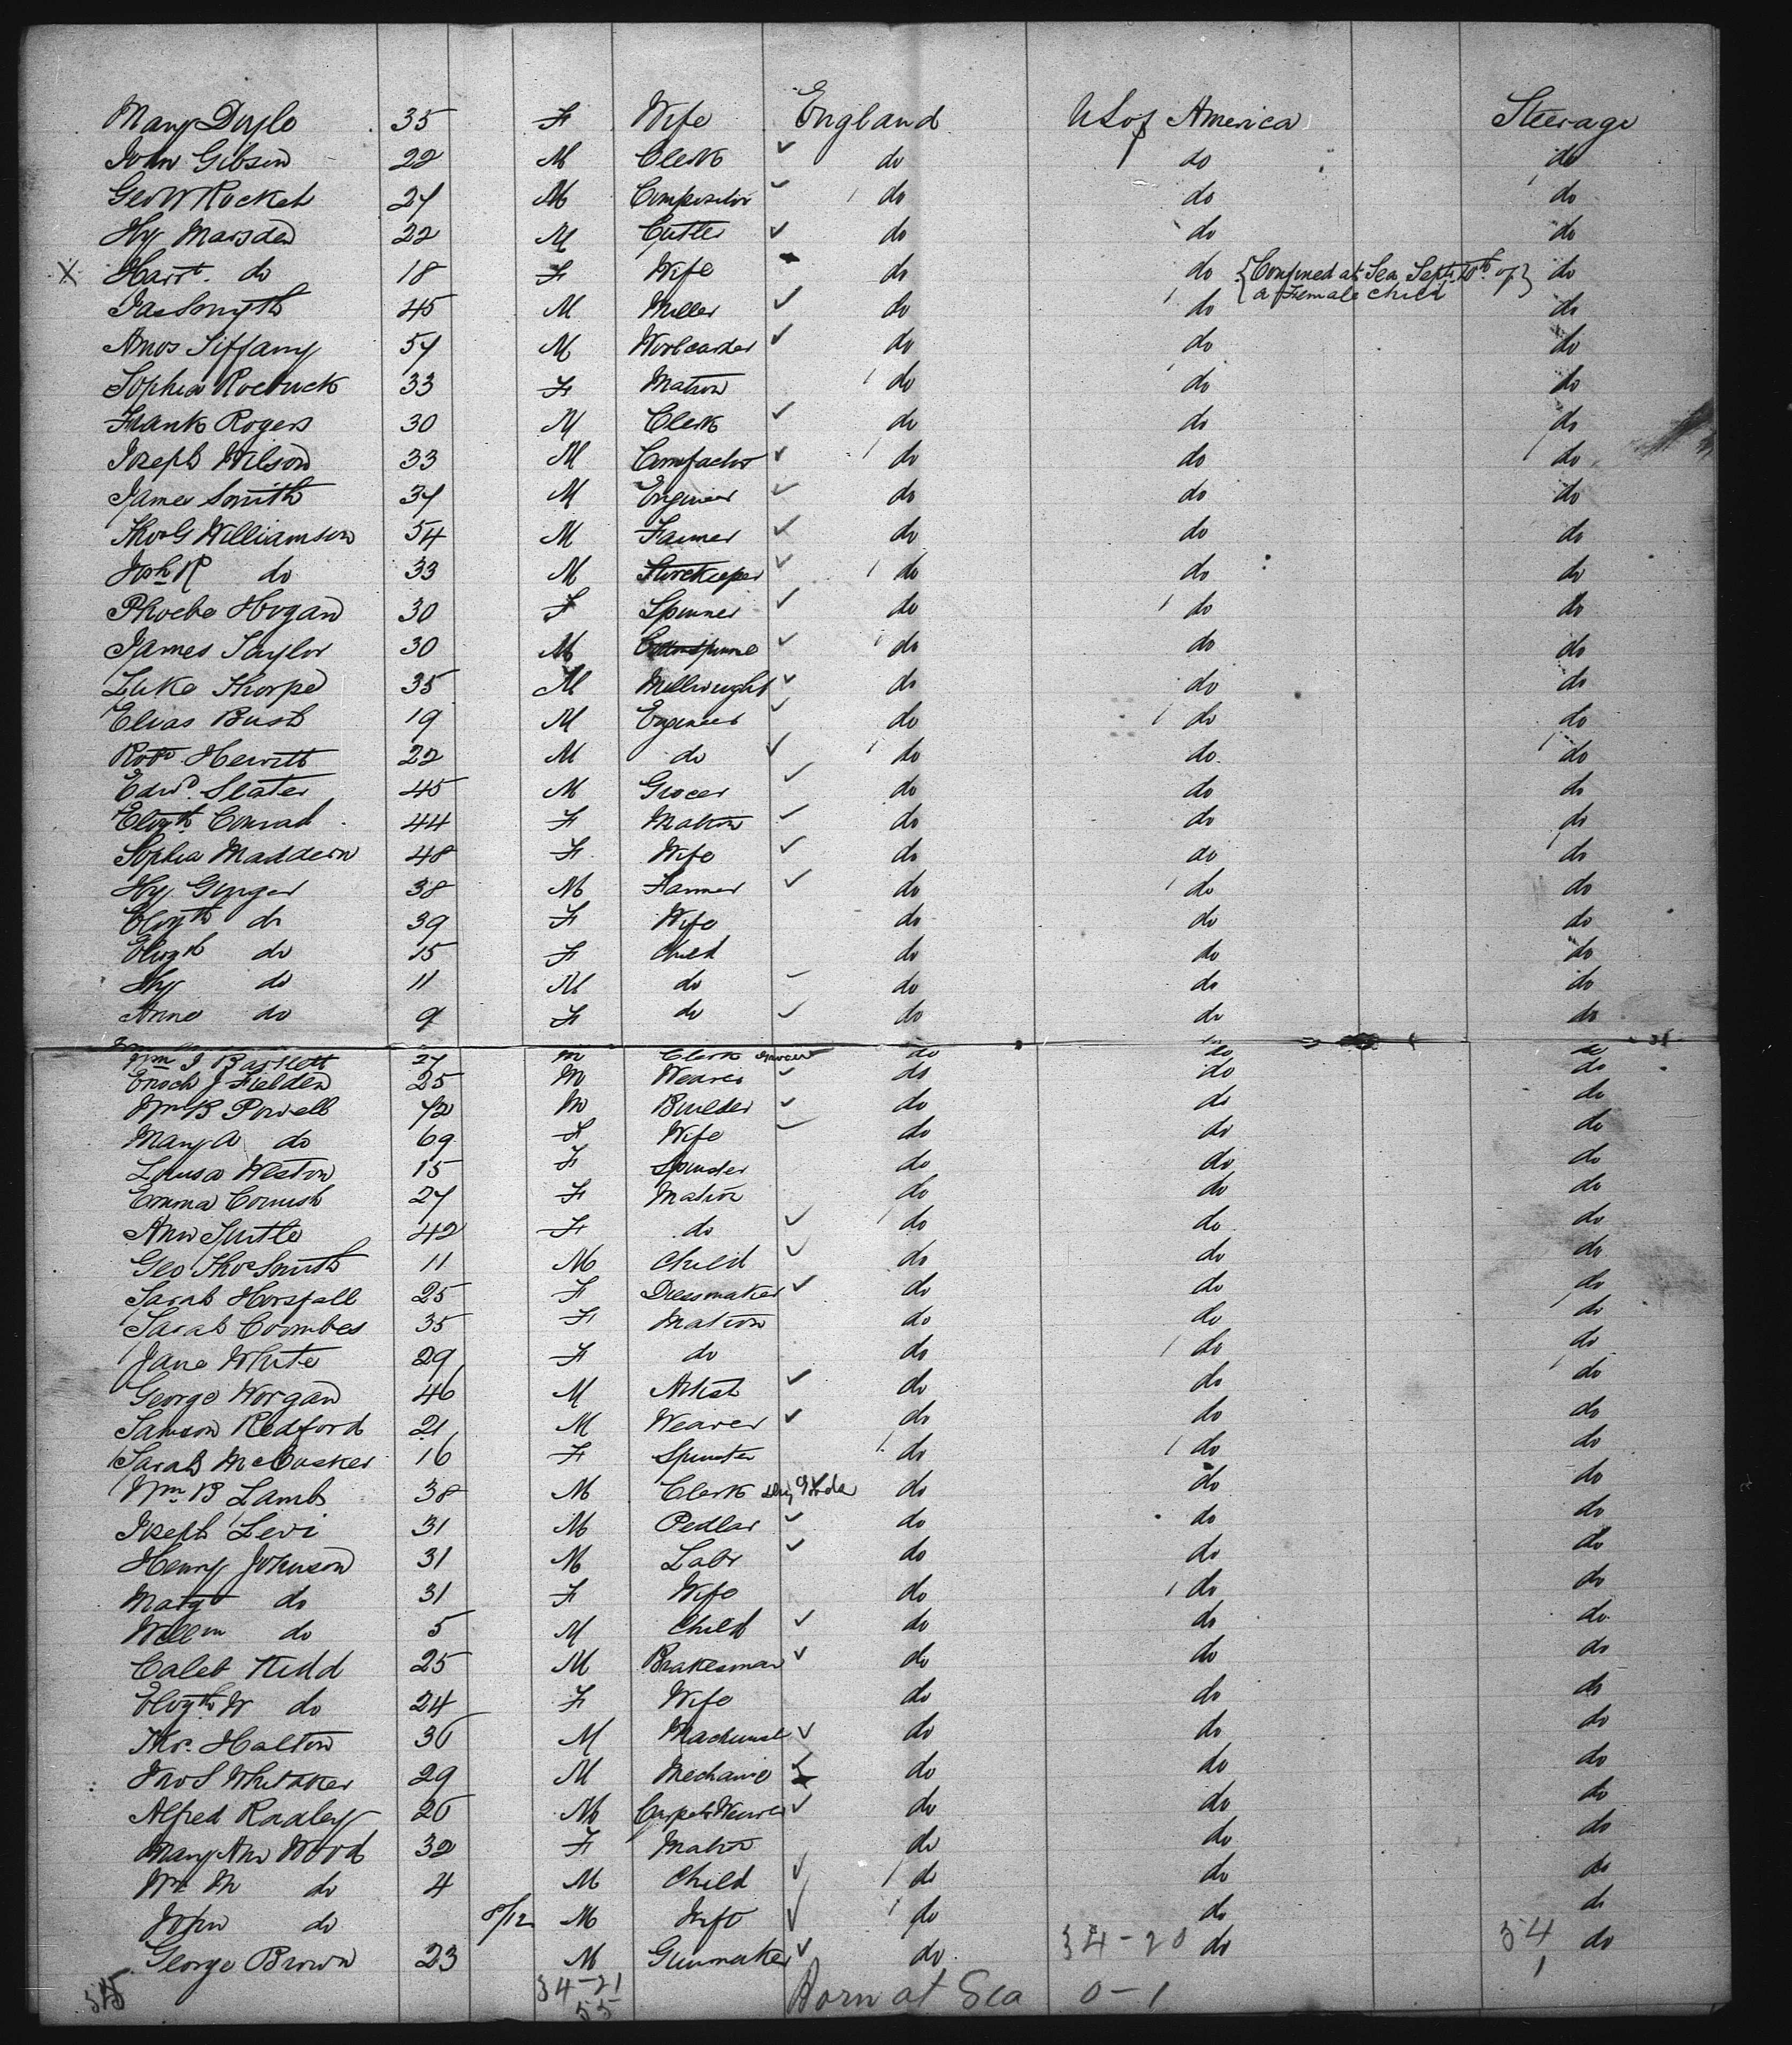 Mary Doyle 35 F Wife England U S of America Steerage
John Gibson 22 M Clerk do do do
Geo W Rocket 27 M Compositor do do do
Hy Marsden 22 M Cutler do do do
X Harrt. do 18 F Wife do do {Confined at Sea Sept. 10th of} do
a Female child
Jas Smyth 45 M Miller do do do
Amos Tiffany 57 M Woolcarder do do do
Sophia Roebuck 33 F Matron do do do
Frank Rogers 30 M Clerk do do do
Joseph Wilson 33 M do do do
James Smith 37 M Engineer do do do
Thos G Williamson 54 M Farmer do do do
Josh R do 33 M Storekeeper do do do
Phoebe Hogan 30 F Spinner do do do
James Taylor 30 M do do do
Luke Thorpe 35 M Millwright do do do
Elias Bush 19 M Engineer do do do
Robt. Hewitt 22 M do do do do
Edwd. Slater 45 M Grocer do do do
Elizth. Conrad 44 F Matron do do do
Sophia Maddern 48 F Wife do do do
Hy. Ginger 38 M Farmer do do do
Elizth do 39 F Wife do do do
Elizth do 15 F Child do do do
Hy do 11 M do do do do
Anne do 9 F do do do do
Wm J Bartlett 27 M Clerk Grocer do do do
Enoch J Fielden 25 M Weaver do do do
Wm B Powell 72 M Builder do do do
Mary A do 69 F Wife do do do
Louisa Weston 15 F Spinster do do do
Emma Cornish 27 F Matron do do do
Ann Tuttle 42 F do do do do
Geo Thos Smith 11 M Child do do do
Sarah Horsfall 25 F Dressmaker do do do
Sarah Coombes 35 F Matron do do do
Jane White 29 F do do do do
George Worgan 46 M Artist do do do
Samson Redford 21 M Weaver do do do
Sarah McCusker 16 F Spinster do do do
Wm B Lamb 38 M Clerk Dry Goods do do do
Joseph Levi 31 M Pedlar do do do
Henry Johnson 31 M Labr do do do
Margt do 31 F Wife do do do
Willm do 5 M Child do do do
Caleb Kidd 25 M Brakesman do do do
Elizth. W do 24 F Wife do do do
Thos. Halton 36 M Machinist do do do
Jno S Whitaker 29 M Mechanic do do do
Alfred Radley 26 M Carpet Weaver do do do
Mary Ann Wood 32 F Matron do do do
Wm M do 4 M Child do do do
John do 8/12 M Inft do do do
George Brown 23 M Gunmaker do 34-20 do 34 do
34-21 Born at Sea 0-1 1
55